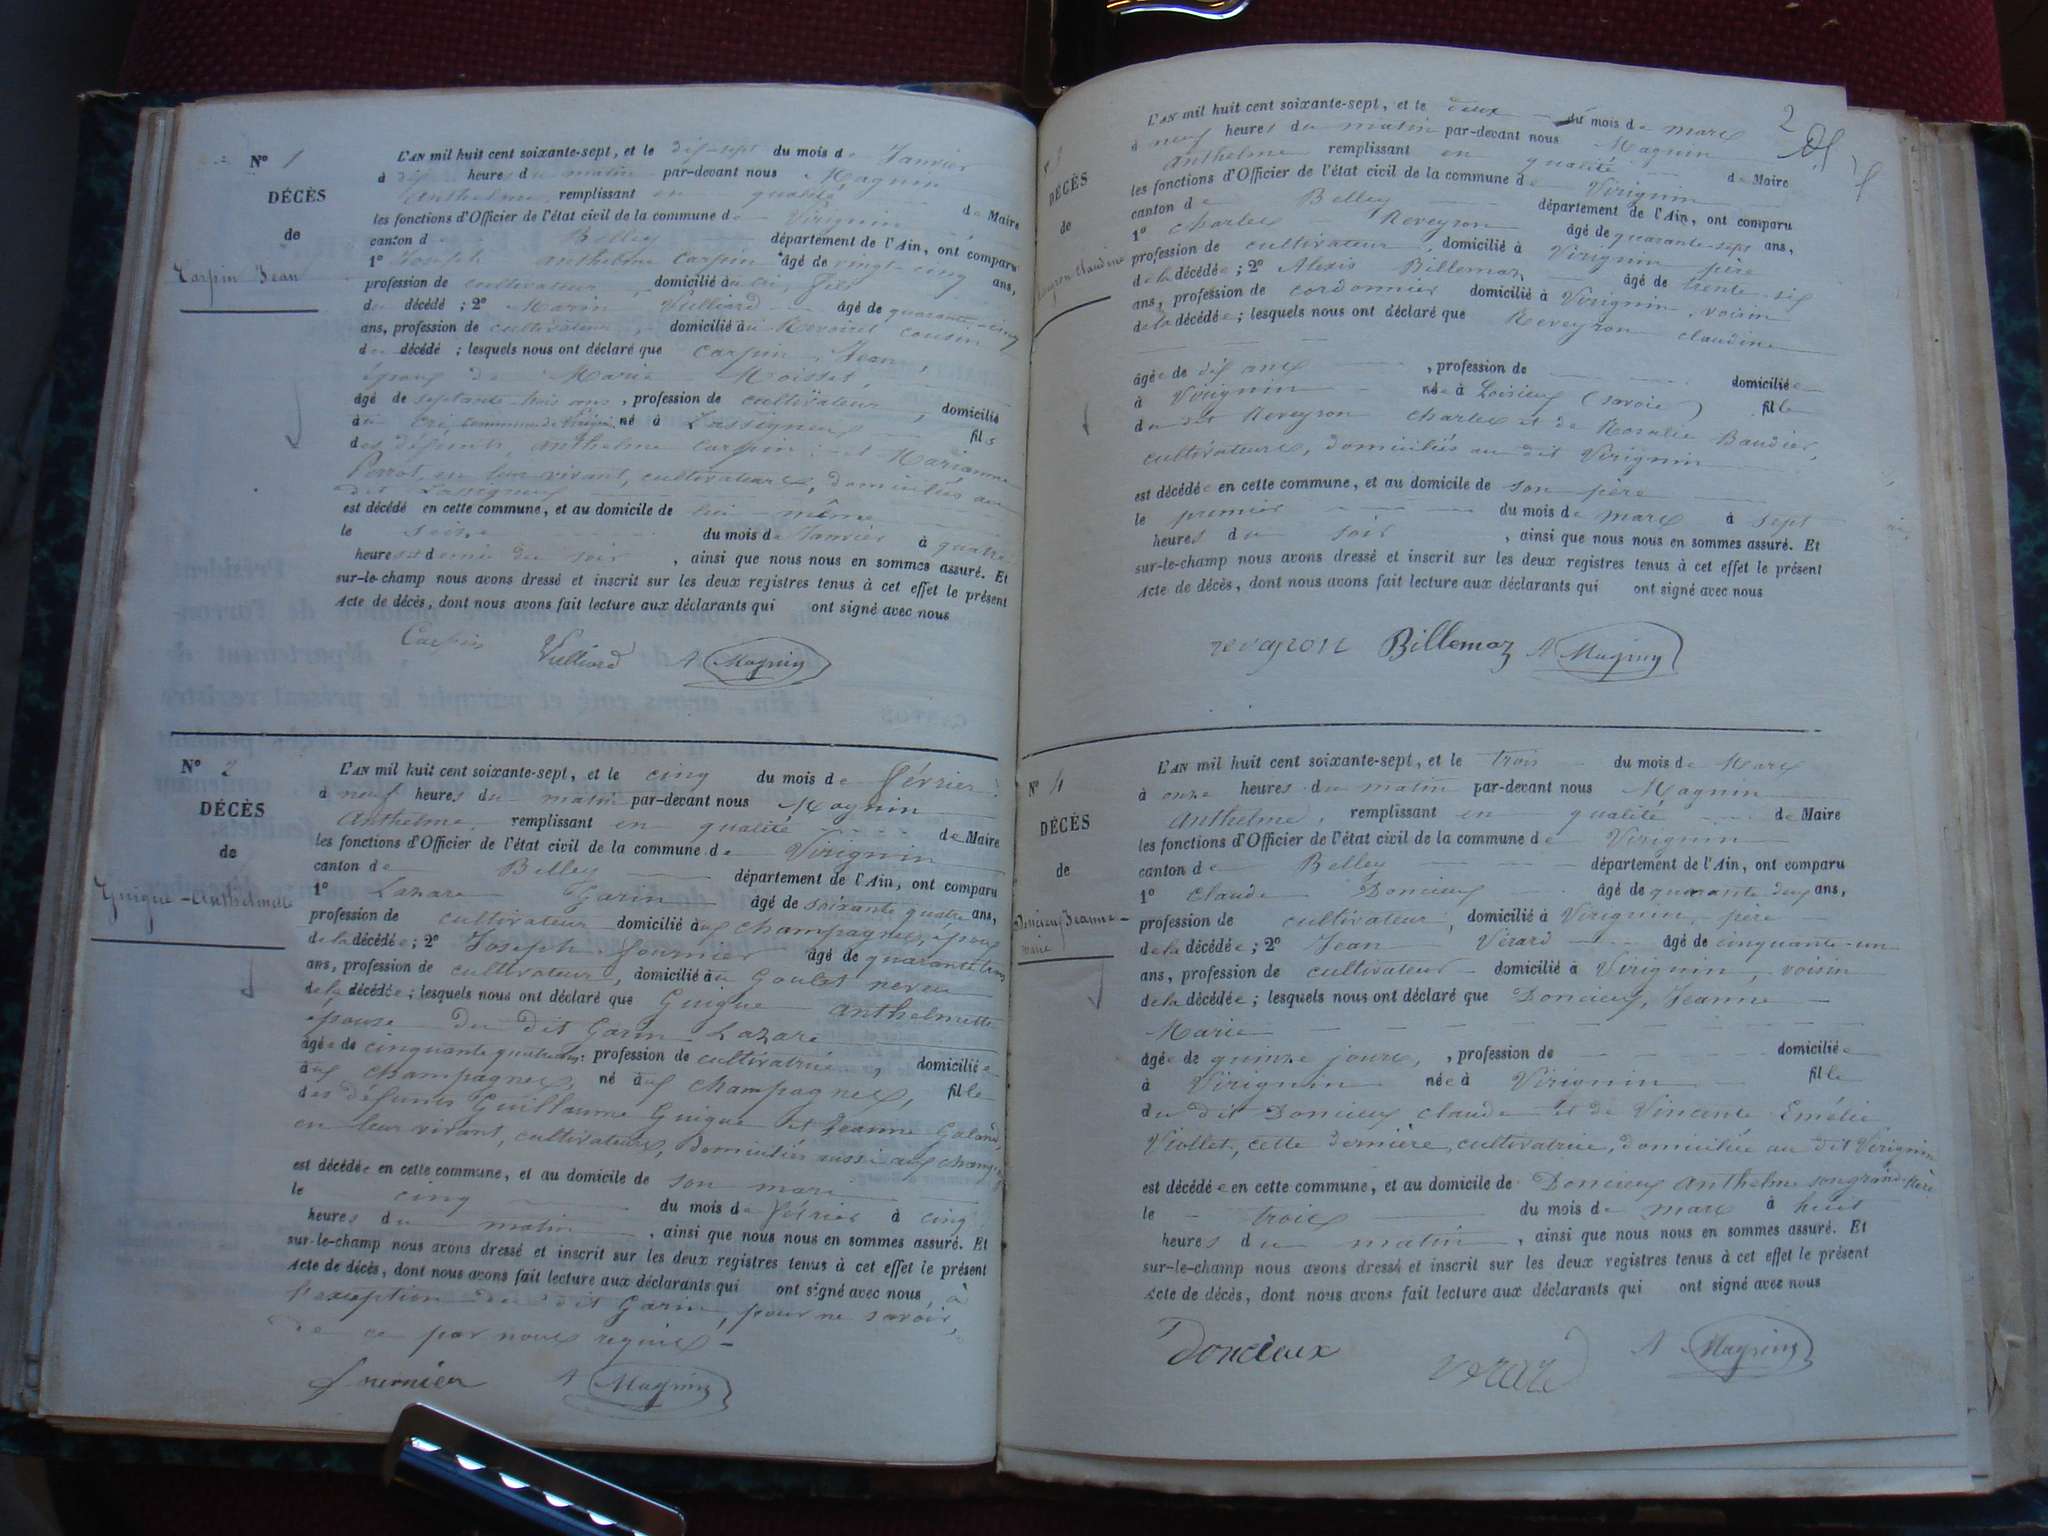 N° 1
DÉCÈS
de
Carpin Jean
L'AN mil huit cent soixante-sept, et le dix-sept du mois de Janvier
à dix heures du matin par-devant nous Magnin
Anthelme remplissant en qualité de Maire
les fonctions d'Officier de l'état civil de la commune de Virignin
canton de Belley département de l'Ain, ont comparu
1° Joseph Anthelme Carpin âgé de vingt cinq ans,
profession de cultivateur, domicilié au cri, fils
du décédé ; 2° Marin Vulliard âgé de quarante-cinq
ans, profession de cultivateur, domicilié au Revoiret cousin
du décédé ; lesquels nous ont déclaré que Carpin, Jean,
époux de Marie Moisset,
âgé de septante trois ans, profession de cultivateur, domicilié
au cri, commune de Virignin, né à Lassigneux fils
des défunts, Anthelme Carpin et Marianne
Perrot, en leur vivant, cultivateurs, domiciliés au
dit Lassigneux
est décédé en cette commune, et au domicile de lui-même
le seize du mois de Janvier à quatre
heures et demie du soir, ainsi que nous nous en sommes assuré. Et
sur-le-champ nous avons dressé et inscrit sur les deux registres tenus à cet effet le présent
Acte de décès, dont nous avons fait lecture aux déclarants qui ont signé avec nous
Carpin Vulliard A Magnin
N° 2
DÉCÈS
de
Guigue-Anthelmette
L'AN mil huit cent soixante-sept, et le cinq du mois de février
à neuf heures du matin par-devant nous Magnin
Anthelme, remplissant en qualité de Maire
les fonctions d'Officier de l'état civil de la commune de Virignin
canton de Belley département de l'Ain, ont comparu
1° Lazare Garin âgé de soixante quatre ans,
profession de cultivateur domicilié aux champagnes, époux
de la décédée ; 2° Joseph fournier âgé de quarante trois
ans, profession de cultivateur, domicilié au Goulet neveu
de la décédée ; lesquels nous ont déclaré que Guigue Anthelmette
épouse du dit Garin Lazare
âgée de cinquante quatre ans profession de cultivatrice, domiciliée
aux champagnes, né aux champagnes, fille
des défunts Guillaume Guigue et Jeanne Goland,
en leur vivant, cultivateurs, Domiciliés aussi aux champagnes
est décédée en cette commune, et au domicile de son mari
le cinq du mois de février à cinq
heures du matin, ainsi que nous nous en sommes assuré. Et
sur-le-champ nous avons dressé et inscrit sur les deux registres tenus à cet effet le présent
Acte de décès, dont nous avons fait lecture aux déclarants qui ont signé avec nous, à
l'exception du dit Garin, pour ne savoir,
de ce par nous requis
fournier A Magnin
2
N° 3
DÉCÈS
de
Reveyron Claudine
L'AN mil huit cent soixante-sept, et le deux du mois de mars
à neuf heures du matin par-devant nous Magnin
Anthelme remplissant en qualité de Maire
les fonctions d'Officier de l'état civil de la commune de Virignin
canton de Belley département de l'Ain, ont comparu
1° Charles Reveyron âgé de quarante-sept ans,
profession de cultivateur, domicilié à Virignin père
de la décédée ; 2° Alexis Billemaz âgé de trente-six
ans, profession de cordonnier domicilié à Virignin, voisin
de la décédée ; lesquels nous ont déclaré que Reveyron claudine
âgée de dix ans, profession de domiciliée
à Virignin née à Loisieux (savoie) fille
du dit Reveyron Charles et de Rosalie Baudier,
cultivateurs, domiciliés au dit Virignin
est décédée en cette commune, et au domicile de son père
le premier du mois de mars à sept
heures du soir, ainsi que nous nous en sommes assuré. Et
sur-le-champ nous avons dressé et inscrit sur les deux registres tenus à cet effet le présent
Acte de décès, dont nous avons fait lecture aux déclarants qui ont signé avec nous
reveyron Billemaz A Magnin
N° 4
DÉCÈS
de
Doncieux Jeanne-
Marie
L'AN mil huit cent soixante-sept, et le trois du mois de Mars
à onze heures du matin par-devant nous Magnin
Anthelme, remplissant en qualité de Maire
les fonctions d'Officier de l'état civil de la commune de Virignin
canton de Belley département de l'Ain, ont comparu
1° Claude Doncieux âgé de quarante deux ans,
profession de cultivateur, domicilié à Virignin, père
de la décédée ; 2° Jean Vérard âgé de cinquante-un
ans, profession de cultivateur domicilié à Virignin, voisin
de la décédée ; lesquels nous ont déclaré que Doncieux, Jeanne
Marie
âgée de quinze jours, profession de domiciliée
à Virignin née à Virignin fille
du dit Doncieux claude et de Vincente Emélie
Viollet, cette dernière, cultivatrice, domiciliée au dit Virignin
est décédée en cette commune, et au domicile de Doncieux Anthelme son grand-père
le trois du mois de mars à huit
heures du matin, ainsi que nous nous en sommes assuré. Et
sur-le-champ nous avons dressé et inscrit sur les deux registres tenus à cet effet le présent
Acte de décès, dont nous avons fait lecture aux déclarants qui ont signé avec nous
Doncieux Verard A Magnin